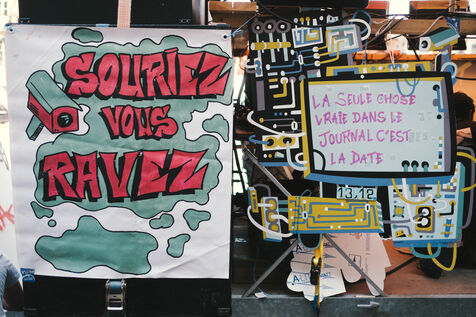 SOURIEZ
VOUS
RAVEZ
LA SEULE CHOSE
VRAIE DANS LE
JOURNAL C'EST
LA DATE
13.12